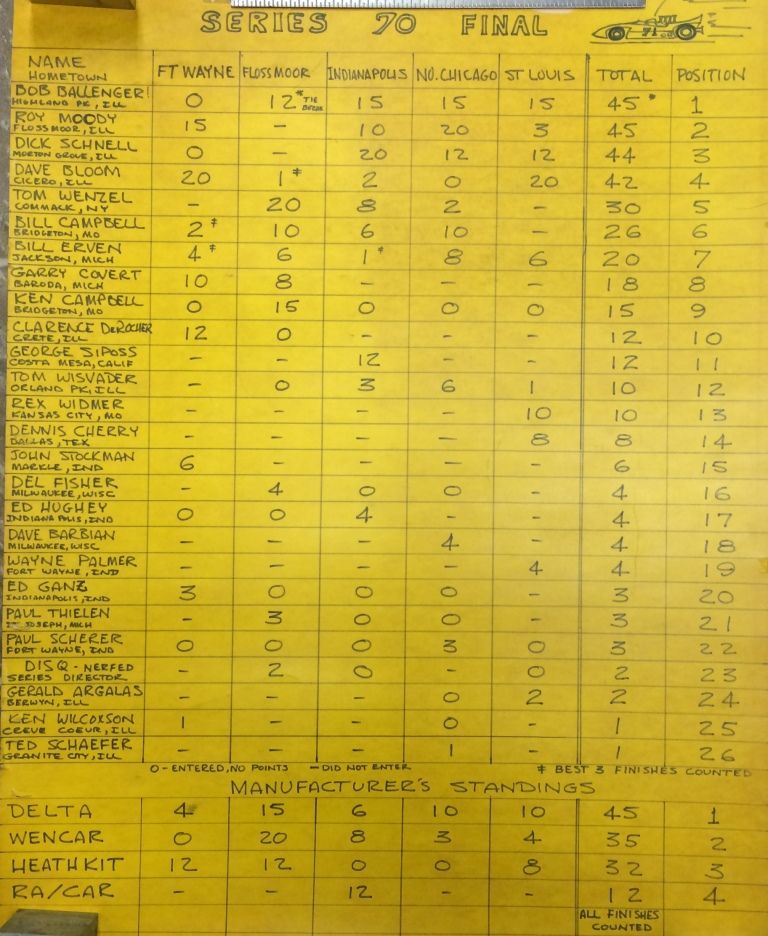 SERIES 70 FINAL
NAME HOMETOWN FT WAYNE FLOSSMOOR INDIANAPOLIS NO. CHICAGO ST LOUIS TOTAL POSITION
BOB BALLENGER! 0 12* TIE BREAK 15 15 15 45* 1
HIGHLAND PK, ILL
ROY MOODY 15 - 10 20 3 45 2
FLOSSMOOR, ILL
DICK SCHNELL 0 - 20 12 12 44 3
MORTON GROVE, ILL
DAVE BLOOM 20 1‡ 2 0 20 42 4
CICERO, ILL
TOM WENZEL - 20 8 2 - 30 5
COMMACK, NY
BILL CAMPBELL 2‡ 10 6 10 - 26 6
BRIDGETON, MO
BILL ERVEN 4‡ 6 1‡ 8 6 20 7
JACKSON, MICH
GARRY COVERT 10 8 - - - 18 8
BARODA, MICH
KEN CAMPBELL 0 15 0 0 0 15 9
BRIDGETON, MO
CLARENCE DeROCHER 12 0 - - - 12 10
CRETE, ILL
GEORGE SIPOSS - - 12 - - 12 11
COSTA MESA, CALIF
TOM WISVADER - 0 3 6 1 10 12
ORLAND PK, ILL
REX WIDMER - - - - 10 10 13
KANSAS CITY, MO
DENNIS CHERRY - - - - 8 8 14
DALLAS, TEX
JOHN STOCKMAN 6 - - - - 6 15
MARKLE, IND
DEL FISHER - 4 0 0 - 4 16
MILWAUKEE, WISC
ED HUGHEY 0 0 4 - - 4 17
INDIANA POLIS, IND
DAVE BARBIAN - - - 4 - 4 18
MILWAUKEE, WISC
WAYNE PALMER - - - - 4 4 19
FORT WAYNE, IND
ED GANZ 3 0 0 0 - 3 20
INDIANAPOLIS, IND
PAUL THIELEN - 3 0 0 - 3 21
JOSEPH, MICH
PAUL SCHERER 0 0 0 3 0 3 22
FORT WAYNE, IND
DISQ - NERFED - 2 0 - 0 2 23
SERIES DIRECTOR
GERALD ARGALAS - - - 0 2 2 24
BERWYN, ILL
KEN WILCOXSON 1 - - 0 - 1 25
CREVE COEUR, ILL
TED SCHAEFER - - - 1 - 1 26
GRANITE CITY, ILL
0 - ENTERED, NO POINTS — DID NOT ENTER ‡ BEST 3 FINISHES COUNTED
MANUFACTURER'S STANDINGS
DELTA 4 15 6 10 10 45 1
WENCAR 0 20 8 3 4 35 2
HEATHKIT 12 12 0 0 8 32 3
RA/CAR - - 12 - - 12 4
ALL FINISHES
COUNTED